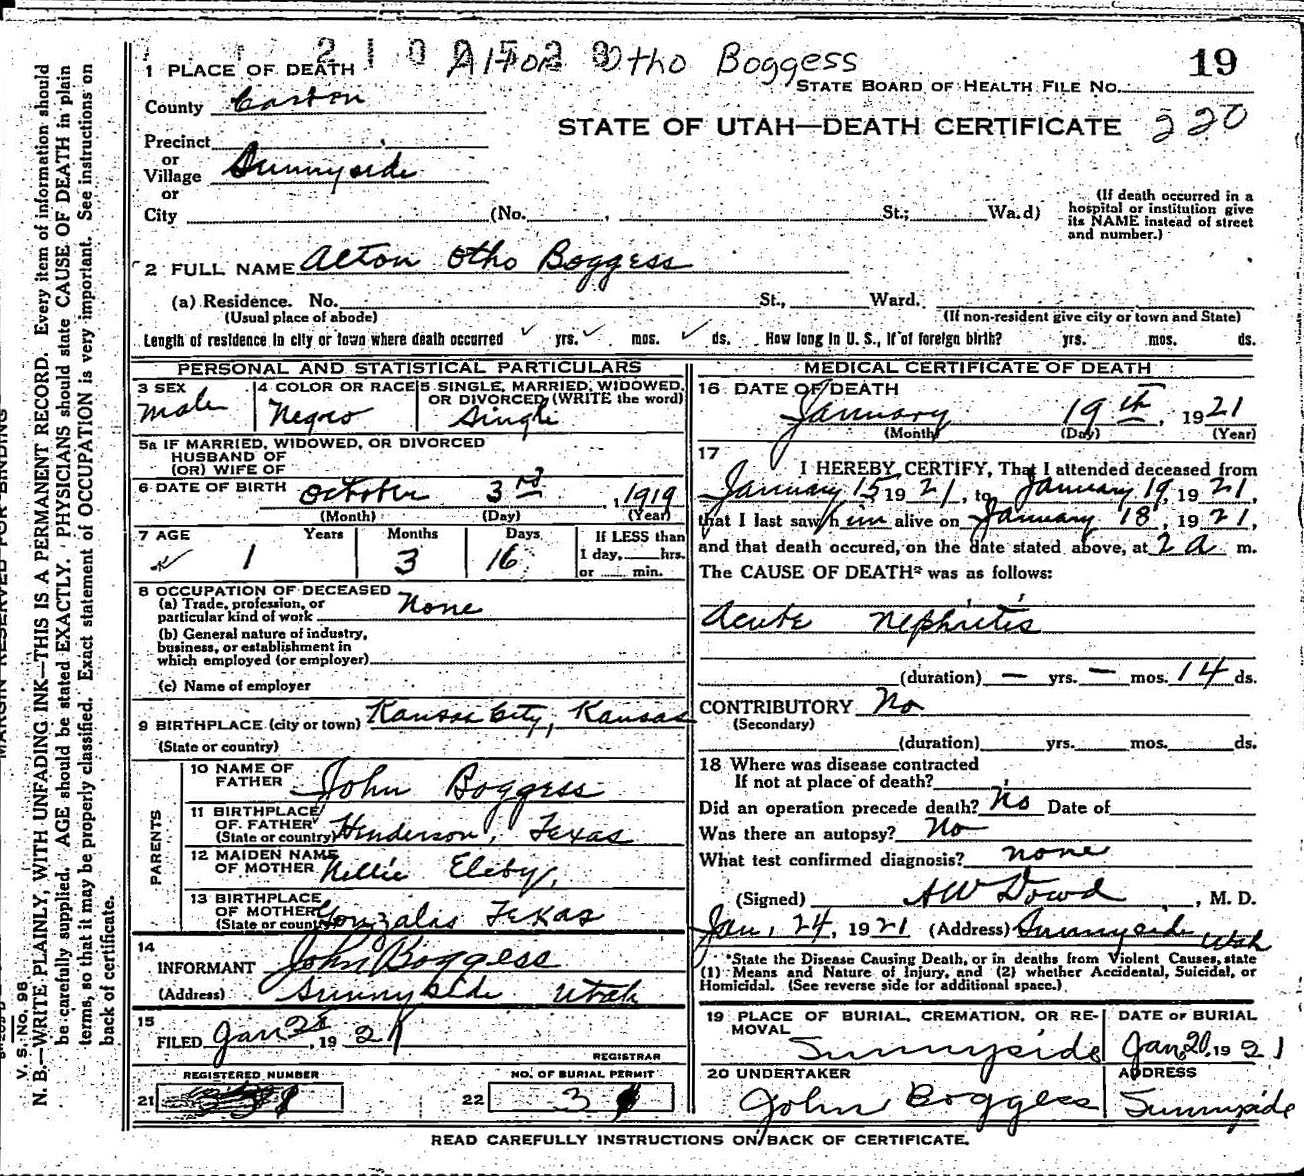 2 1 0 0 5 2 8 Alton Otho Boggess 19
1 PLACE OF DEATH STATE BOARD OF HEALTH FILE NO.
County Carbon
STATE OF UTAH—DEATH CERTIFICATE 220
Precinct
or
Village Sunnyside
or
City (No. , St.; Wa.d)
(If death occurred in a
hospital or institution give
its NAME instead of street
and number.)
2 FULL NAME Alton Otho Boggess
(a) Residence. No. St., Ward.
(Usual place of abode) (If non-resident give city or town and State)
Length of residence in city or town where death occurred ✓ yrs. ✓ mos. ✓ ds. How long in U. S., if of foreign birth? yrs. mos. ds.
PERSONAL AND STATISTICAL PARTICULARS
3 SEX Male
4 COLOR OR RACE Negro
5 SINGLE, MARRIED, WIDOWED,
OR DIVORCED (WRITE the word)
Single
5a IF MARRIED, WIDOWED, OR DIVORCED
HUSBAND OF
(OR) WIFE OF
6 DATE OF BIRTH October 3rd , 1919
(Month) (Day) (Year)
7 AGE Years Months Days If LESS than
✓ 1 3 16 1 day, hrs.
or min.
8 OCCUPATION OF DECEASED
(a) Trade, profession, or
particular kind of work None
(b) General nature of industry,
business, or establishment in
which employed (or employer)
(c) Name of employer
9 BIRTHPLACE (city or town) Kansas City, Kansas
(State or country)
PARENTS
10 NAME OF
FATHER John Boggess
11 BIRTHPLACE
OF FATHER
(State or country) Henderson, Texas
12 MAIDEN NAME
OF MOTHER Nellie Eleby,
13 BIRTHPLACE
OF MOTHER
(State or country) Gonzalas Texas
14
INFORMANT John Boggess
(Address) Sunnyside Utah
15
FILED Jan 28, 19 21
REGISTRAR
REGISTERED NUMBER NO. OF BURIAL PERMIT
21 22 3
MEDICAL CERTIFICATE OF DEATH
16 DATE OF DEATH
January 19th, 1921
(Month) (Day) (Year)
17
I HEREBY CERTIFY, That I attended deceased from
January 15 19 21, to January 19, 19 21,
that I last saw him alive on January 18, 19 21,
and that death occured, on the date stated above, at 2 a m.
The CAUSE OF DEATH* was as follows:
Acute Nephritis
(duration) — yrs. — mos. 14 ds.
CONTRIBUTORY No
(Secondary)
(duration) yrs. mos. ds.
18 Where was disease contracted
If not at place of death?
Did an operation precede death? No Date of
Was there an autopsy? No
What test confirmed diagnosis? none
(Signed) AW Dowd , M. D.
Jan, 24, 1921 (Address) Sunnyside Utah
*State the Disease Causing Death, or in deaths from Violent Causes, state
(1) Means and Nature of Injury, and (2) whether Accidental, Suicidal, or
Homicidal. (See reverse side for additional space.)
19 PLACE OF BURIAL, CREMATION, OR RE-
MOVAL
Sunnyside
DATE OF BURIAL
Jan 20, 19 21
20 UNDERTAKER
John Boggess
ADDRESS
Sunnyside
READ CAREFULLY INSTRUCTIONS ON BACK OF CERTIFICATE.
MARGIN RESERVED FOR BINDING
V. S. No. 98
N. B.—WRITE PLAINLY, WITH UNFADING INK—THIS IS A PERMANENT RECORD. Every item of information should
be carefully supplied. AGE should be stated EXACTLY. PHYSICIANS should state CAUSE OF DEATH in plain
terms, so that it may be properly classified. Exact statement of OCCUPATION is very important. See instructions on
back of certificate.